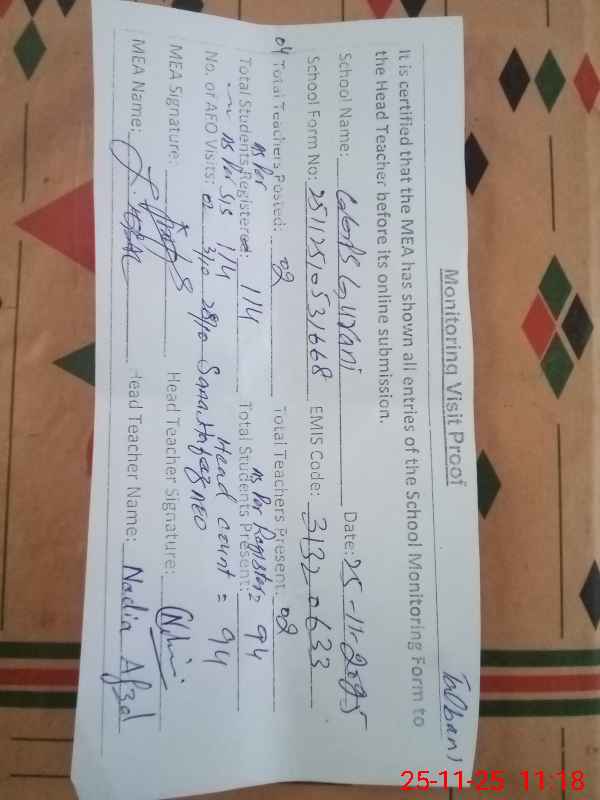 Monitoring Visit Proof
It is certified that the MEA has shown all entries of the School Monitoring Form to
the Head Teacher before its online submission.
School Name: Date: 25-11-2025
School Form No: 25112510531668 EMIS Code: 31320633
04 Total Teachers Posted: 02 Total Teachers Present: 02
as Per as Per Register =
Total Students Registered: 114 Total Students Present: 94
as Per SIS 114 Head count = 94
No. of AFO Visits: 02 3/10 28/10 AEO
MEA Signature: Head Teacher Signature:
MEA Name: Head Teacher Name: Nadia Afzal
25-11-25 11:18